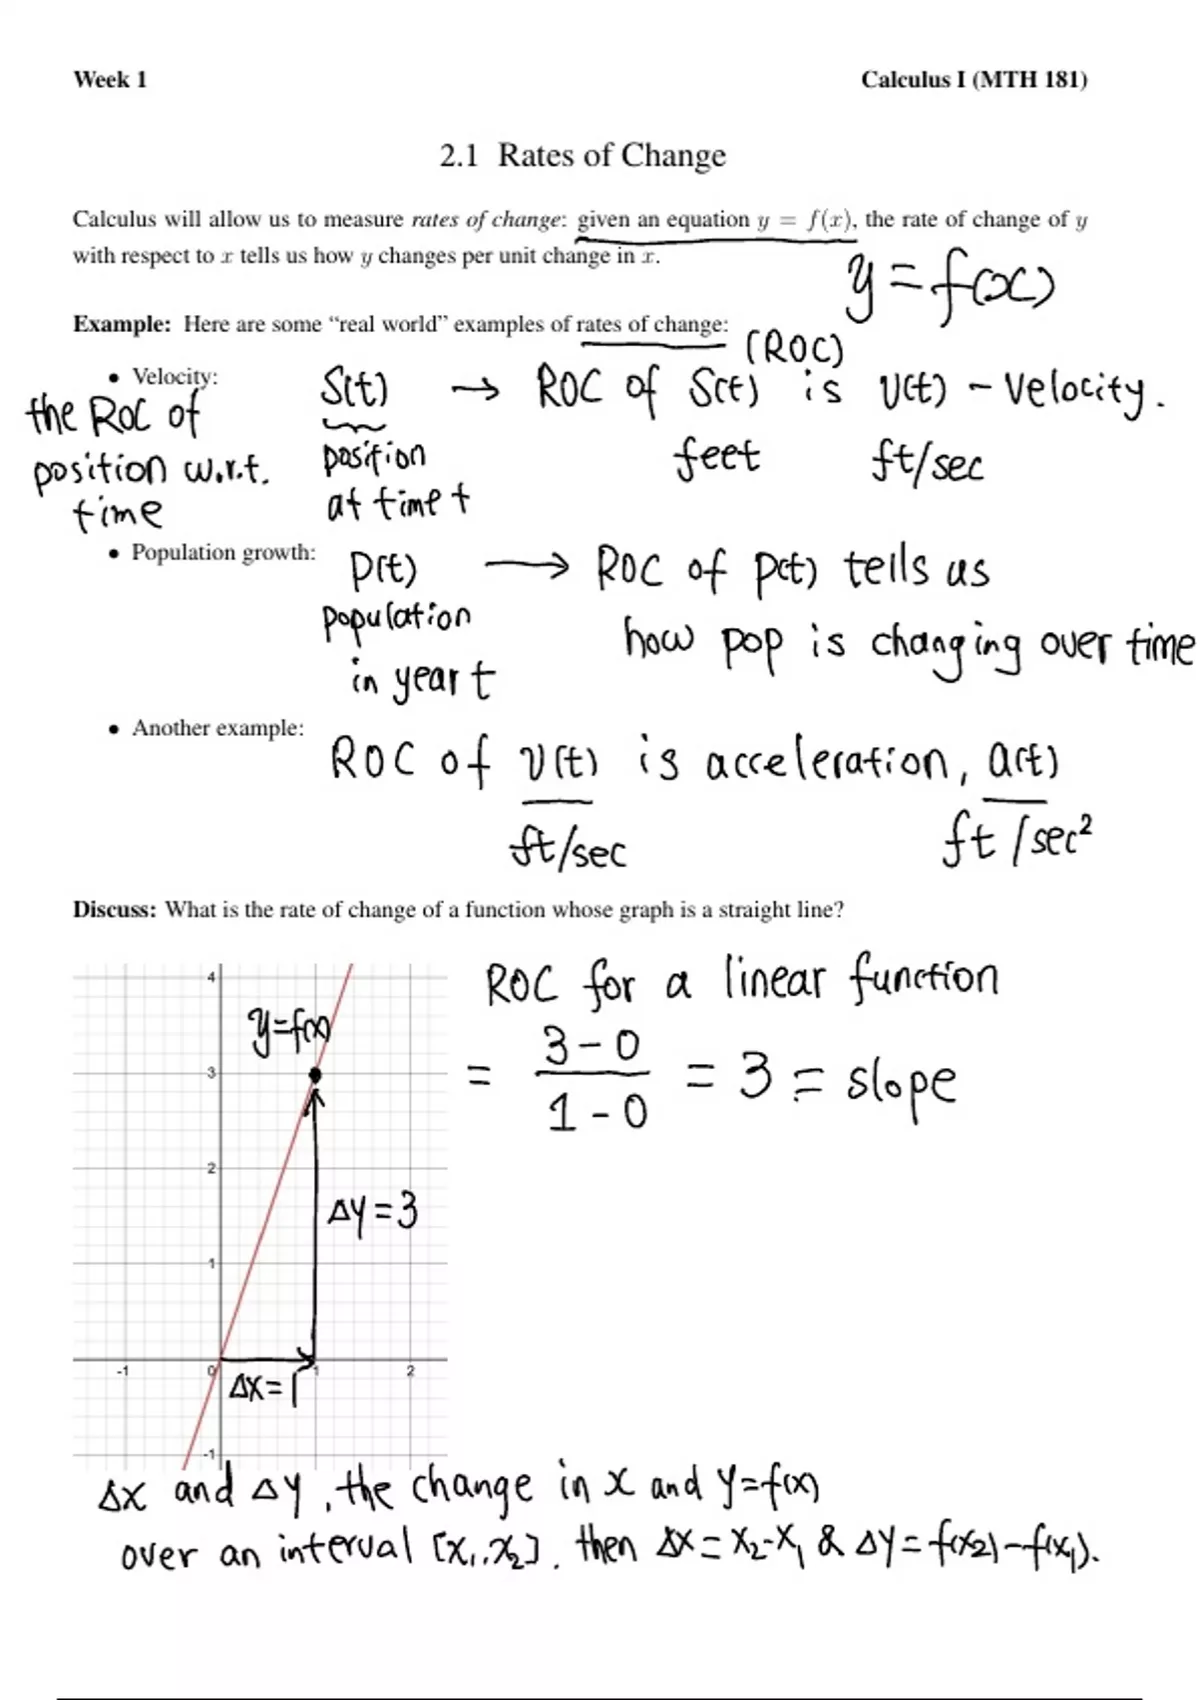 Week 1 Calculus I (MTH 181)
2.1 Rates of Change
Calculus will allow us to measure rates of change: given an equation y = f(x), the rate of change of y
with respect to x tells us how y changes per unit change in x.
y = f(x)
Example: Here are some “real world” examples of rates of change:
(ROC)
• Velocity: S(t) → ROC of S(t) is v(t) - velocity.
the ROC of
position w.r.t.
time
position
at time t
feet ft/sec
• Population growth: P(t) → ROC of P(t) tells us
population
in year t
how pop is changing over time
• Another example:
ROC of v(t) is acceleration, a(t)
ft/sec ft/sec²
Discuss: What is the rate of change of a function whose graph is a straight line?
ROC for a linear function
= 3-0 / 1-0 = 3 = slope
4
y=f(x)
3
2
Δy=3
1
-1 0 1 2
Δx=1
-1
Δx and Δy, the change in x and y=f(x)
over an interval [x₁,x₂]. then Δx=x₂-x₁ & Δy=f(x₂)-f(x₁).